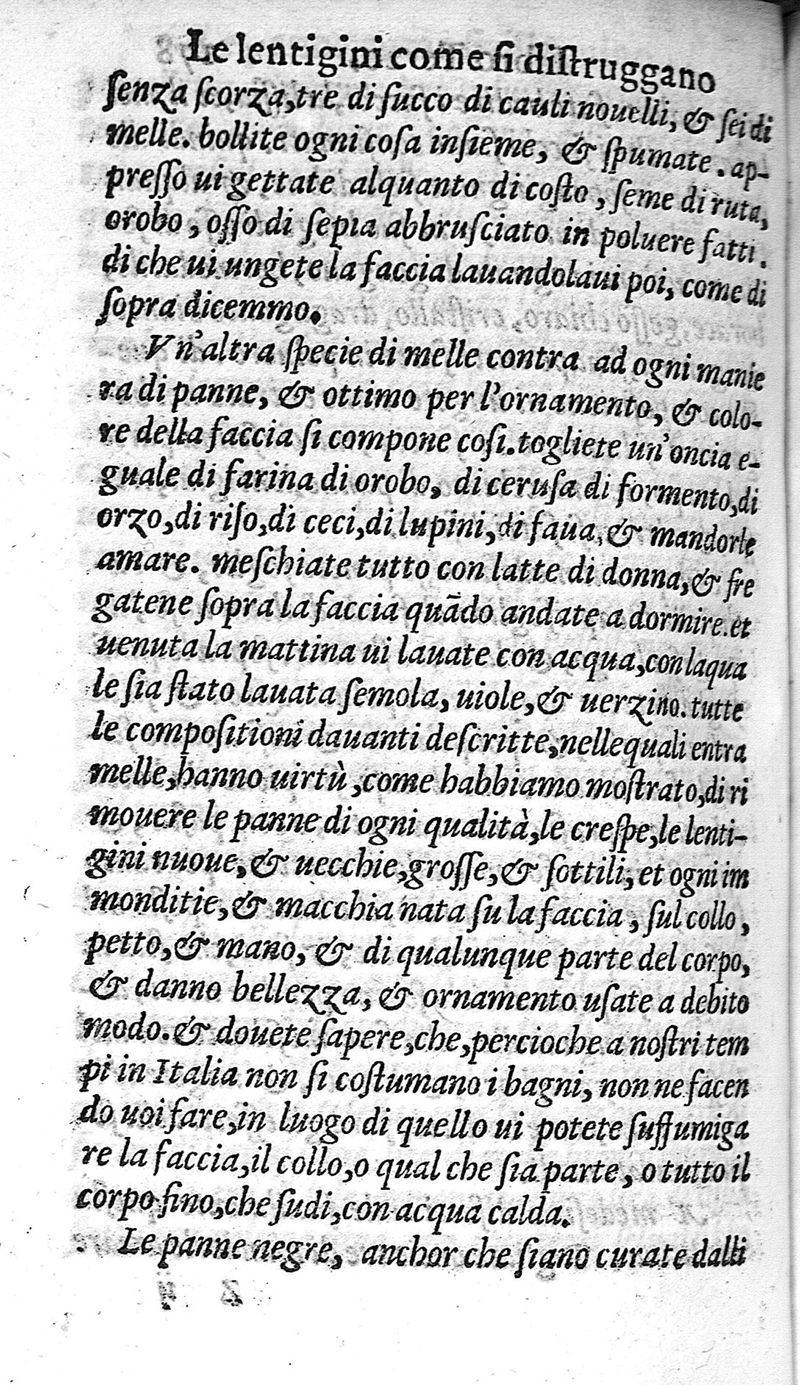 Le lentigini come ſi diſtruggano
ſenza ſcorza, tre di ſucco di cauli nouelli, & ſei di
melle. bollite ogni coſa inſieme, & ſpumate. ap-
preſſo ui gettate alquanto di coſto, ſeme di ruta,
orobo, oſſo di ſepia abbruſciato in poluere fatti.
di che ui ungete la faccia lauandolaui poi, come di
ſopra dicemmo.
Vn'altra ſpecie di melle contra ad ogni manie
ra di panne, & ottimo per l'ornamento, & colo-
re della faccia ſi compone coſi. togliete un'oncia e-
guale di farina di orobo, di ceruſa di formento, di
orzo, di riſo, di ceci, di lupini, di faua, & mandorle
amare. meſchiate tutto con latte di donna, & fre
gatene ſopra la faccia quãdo andate a dormire. et
uenuta la mattina ui lauate con acqua, con laqua
le ſia ſtato lauata ſemola, uiole, & uerzino. tutte
le compoſitioni dauanti deſcritte, nelle quali entra
melle, hanno uirtù, come habbiamo moſtrato, di ri
mouere le panne di ogni qualità, le creſpe, le lenti-
gini nuoue, & uecchie, groſſe, & ſottili, et ogni im
monditie, & macchia nata ſu la faccia, ſul collo,
petto, & mano, & di qualunque parte del corpo,
& danno bellezza, & ornamento uſate a debito
modo. & douete ſapere, che, percioche a noſtri tem
pi in Italia non ſi coſtumano i bagni, non ne facen
do uoi fare, in luogo di quello ui potete ſuffumiga
re la faccia, il collo, o qual che ſia parte, o tutto il
corpo fino, che ſudi, con acqua calda.
Le panne negre, anchor che ſiano curate dalli